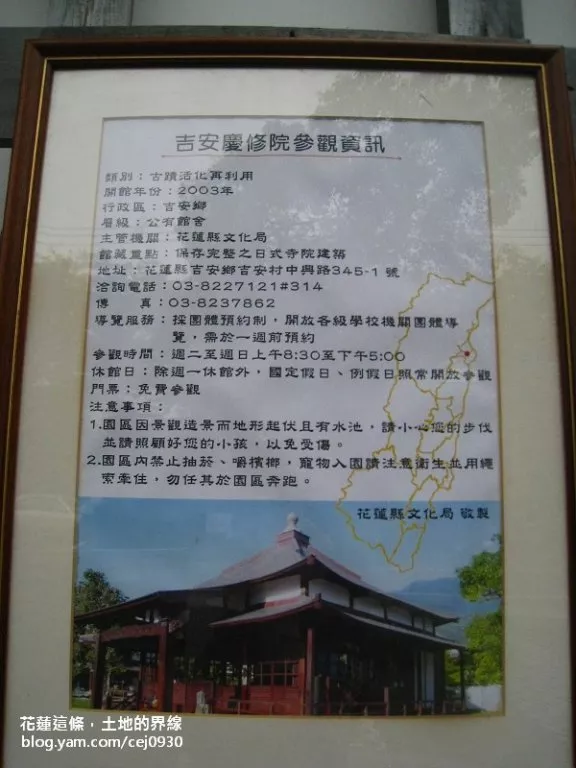 吉安慶修院參觀資訊
類別：古蹟活化再利用
開館年份：2003年
行政區：吉安鄉
層級：公有館舍
主管機關：花蓮縣文化局
館藏重點：保存完整之日式寺院建築
地址：花蓮縣吉安鄉吉安村中興路345-1 號
洽詢電話：03-8227121#314
傳　　真：03-8237862
導覽服務：採團體預約制，開放各級學校機關團體導
覽，需於一週前預約
參觀時間：週二至週日上午8:30至下午5:00
休館日：除週一休館外，國定假日、例假日照常開放參觀
門票：免費參觀
注意事項：
1.園區因景觀造景而地形起伏且有水池，請小心您的步伐
並請照顧好您的小孩，以免受傷。
2.園區內禁止抽菸、嚼檳榔，寵物入園請注意衛生並用繩
索牽住，勿任其於園區奔跑。
花蓮縣文化局 敬製
花蓮這條，土地的界線
blog.yam.com/cej0930